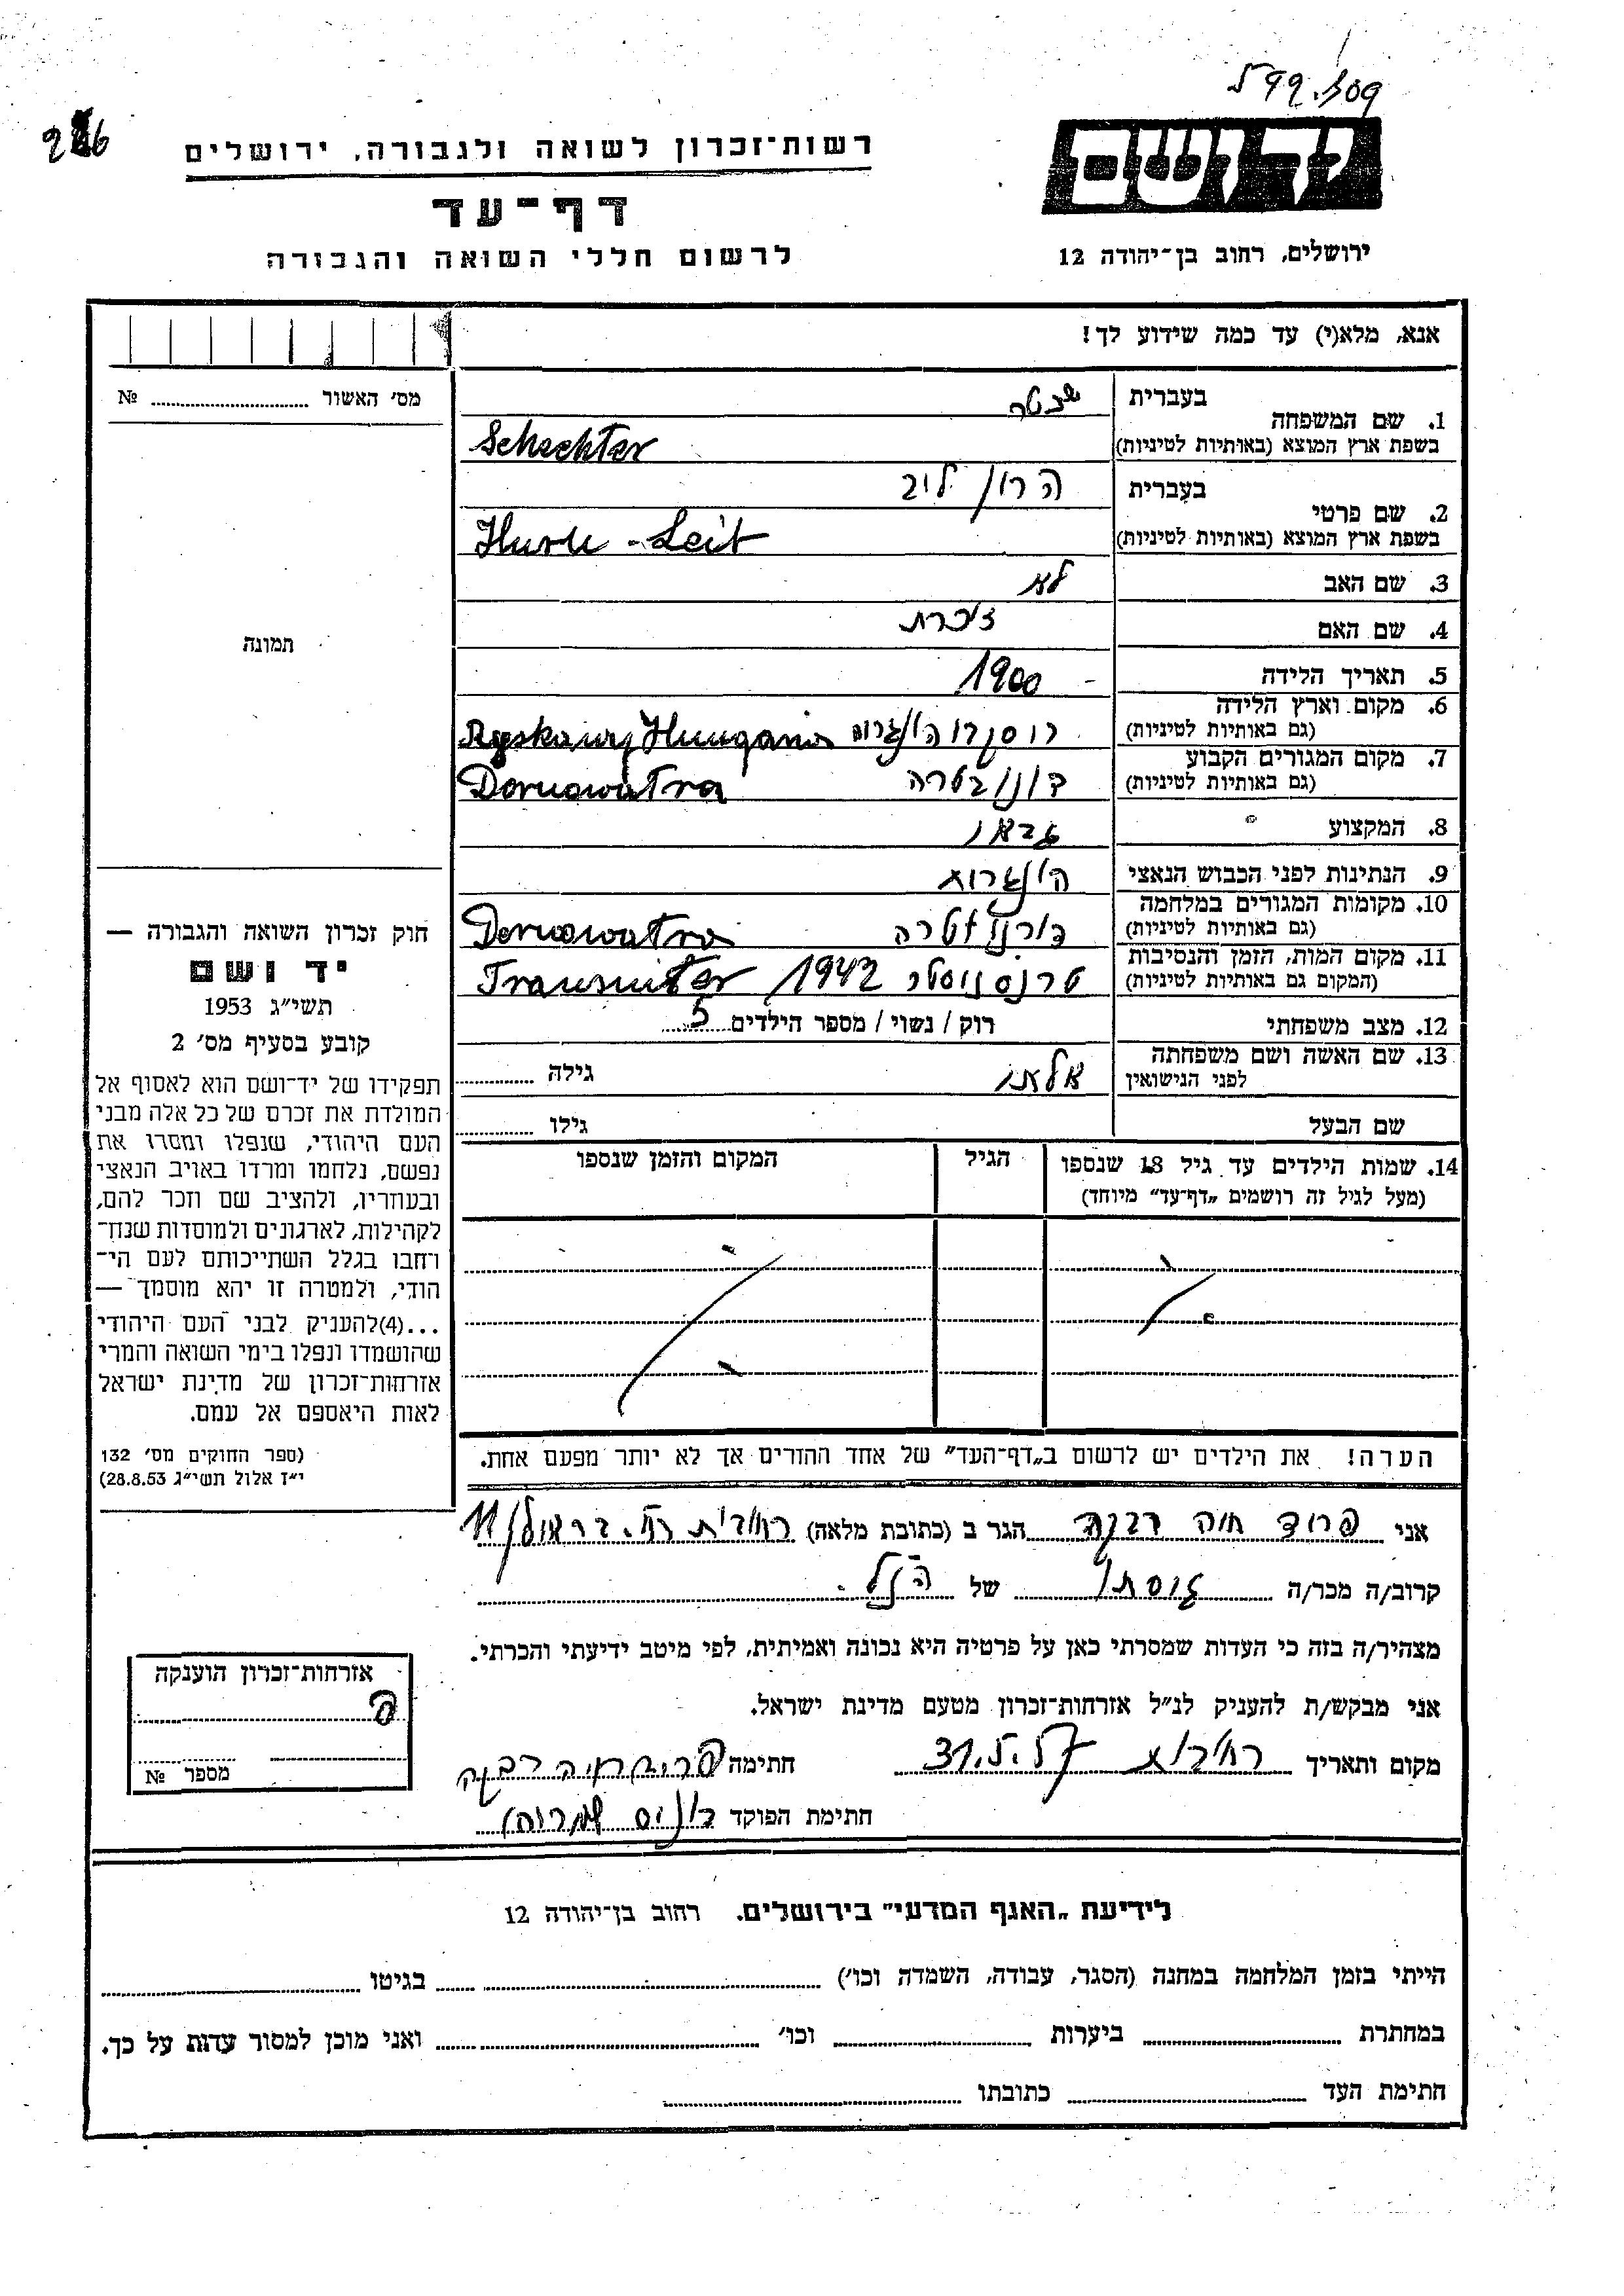 226
רשות־זכרון לשואה ולגבורה, ירושלים
דף־עד
לרשום חללי השואה והגבורה
יד ושם
ירושלים, רחוב בן־יהודה 12
אנא, מלא(י) עד כמה שידוע לך!
מס׳ האשור № 
1. שם המשפחה
בעברית
בשפת ארץ המוצא (באותיות לטיניות) Schechter
2. שם פרטי
בעברית הרון ליב
בשפת ארץ המוצא (באותיות לטיניות)
3. שם האב לא
4. שם האם זיכרת
5. תאריך הלידה 1900
6. מקום וארץ הלידה
(גם באותיות לטיניות)
7. מקום המגורים הקבוע
(גם באותיות לטיניות) Dornawatra
8. המקצוע
9. הנתינות לפני הכבוש הנאצי
10. מקומות המגורים במלחמה
(גם באותיות לטיניות) Dornawatra
11. מקום המות, הזמן והנסיבות
(המקום גם באותיות לטיניות) 1942
12. מצב משפחתי רוק / נשוי / מספר הילדים 5
13. שם האשה ושם משפחתה
לפני הנישואין גילה
שם הבעל גילו
14. שמות הילדים עד גיל 18 שנספו
(מעל לגיל זה רושמים „דף־עד״ מיוחד)
הגיל
המקום והזמן שנספו
הערה! את הילדים יש לרשום ב„דף־העד״ של אחד ההורים אך לא יותר מפעם אחת.
תמונה
חוק זכרון השואה והגבורה —
יד ושם
תשי״ג 1953
קובע בסעיף מס׳ 2
תפקידו של יד־ושם הוא לאסוף אל
המולדת את זכרם של כל אלה מבני
העם היהודי, שנפלו ומסרו את
נפשם, נלחמו ומרדו באויב הנאצי
ובעוזריו, ולהציב שם וזכר להם,
לקהילות, לארגונים ולמוסדות שנח־
רחבו בגלל השתייכותם לעם הי־
הודי, ולמטרה זו יהא מוסמך —
...(4)להעניק לבני העם היהודי
שהושמדו ונפלו בימי השואה והמרי
אזרחות־זכרון של מדינת ישראל
לאות היאספם אל עמם.
(ספר החוקים מס׳ 132
י״ז אלול תשי״ג 28.8.53)
אני פרוד חוה רבקה הגר ב (כתובת מלאה) 11
קרוב/ה מכר/ה גיסתו של הנ״ל
מצהיר/ה בזה כי העדות שמסרתי כאן על פרטיה היא נכונה ואמיתית, לפי מיטב ידיעתי והכרתי.
אני מבקש/ת להעניק לנ״ל אזרחות־זכרון מטעם מדינת ישראל.
מקום ותאריך חתימה
חתימת הפוקד
אזרחות־זכרון הוענקה
מספר №
לידיעת „האגף המדעי״ בירושלים. רחוב בן־יהודה 12
הייתי בזמן המלחמה במחנה (הסגר, עבודה, השמדה וכו׳) בגיטו
במחתרת ביערות וכו׳ ואני מוכן למסור עדות על כך.
חתימת העד כתובתו